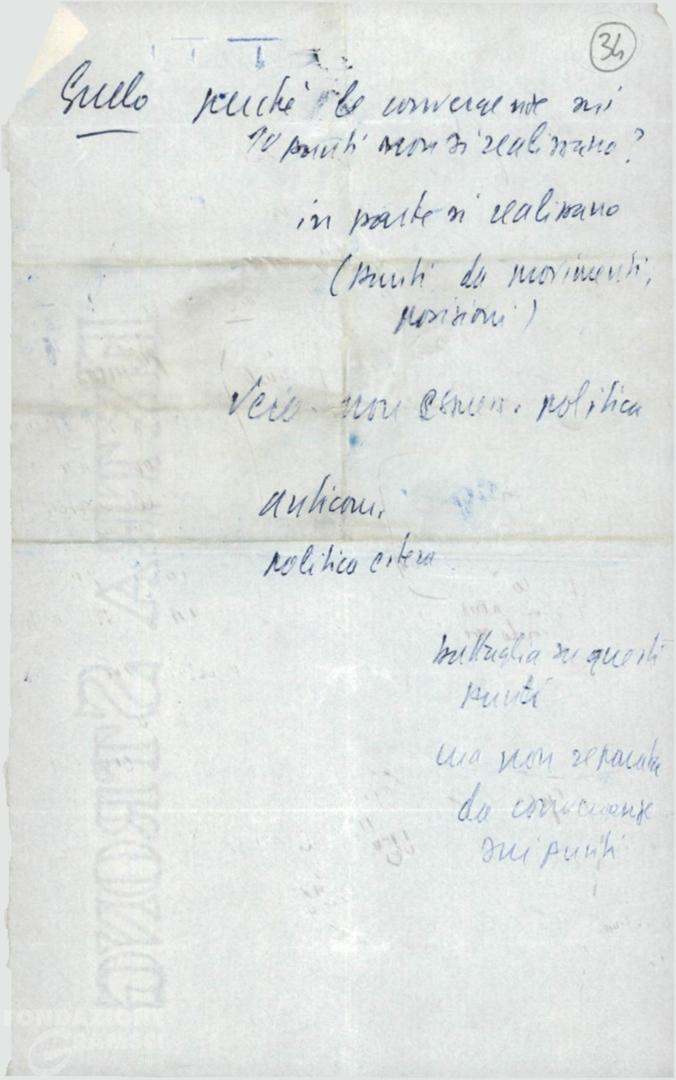 34
Gullo perché le convergenze sui
10 punti non si realizzano?
in parte si realizzano
(punti da movimenti,
posizioni)
Vero non politica
anticom.
politica estera
battaglia su questi
punti
ma non separata
da convergenze
sui punti
FONDAZIONE
GRAMSCI